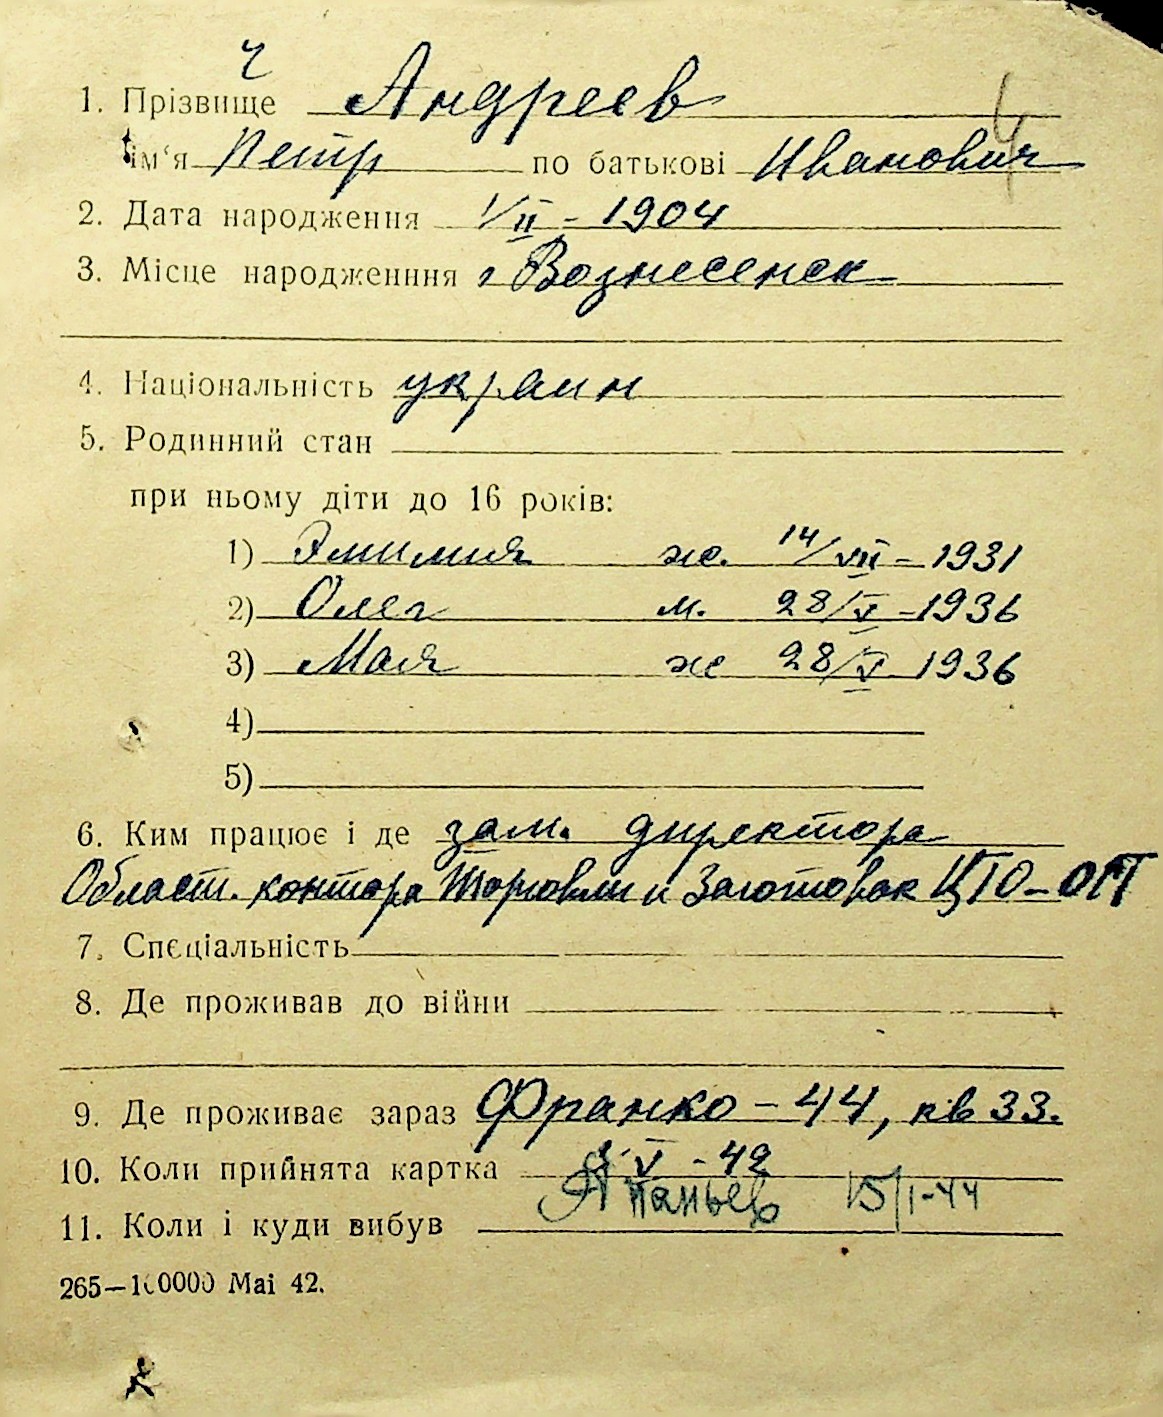 ч
1. Прізвище Андреев
ім'я Петр по батькові Иванович
2. Дата народження 1/II - 1904
3. Місце народженння г Вознесенск
4. Національність украин
5. Родинний стан
при ньому діти до 16 років:
1) Эмилия ж. 14/VII - 1931
2) Олег м. 28/V - 1936
3) Мая ж 28/V 1936
4)
5)
6. Ким працює і де зам. директора
Област. контора Торговли и Заготовок ЦТО-ОТ
7. Спеціальність
8. Де проживав до війни
9. Де проживає зараз Франко - 44, кв 33.
10. Коли прийнята картка V - 42
11. Коли і куди вибув Ананьев 15/I-44
265—100000 Маі 42.